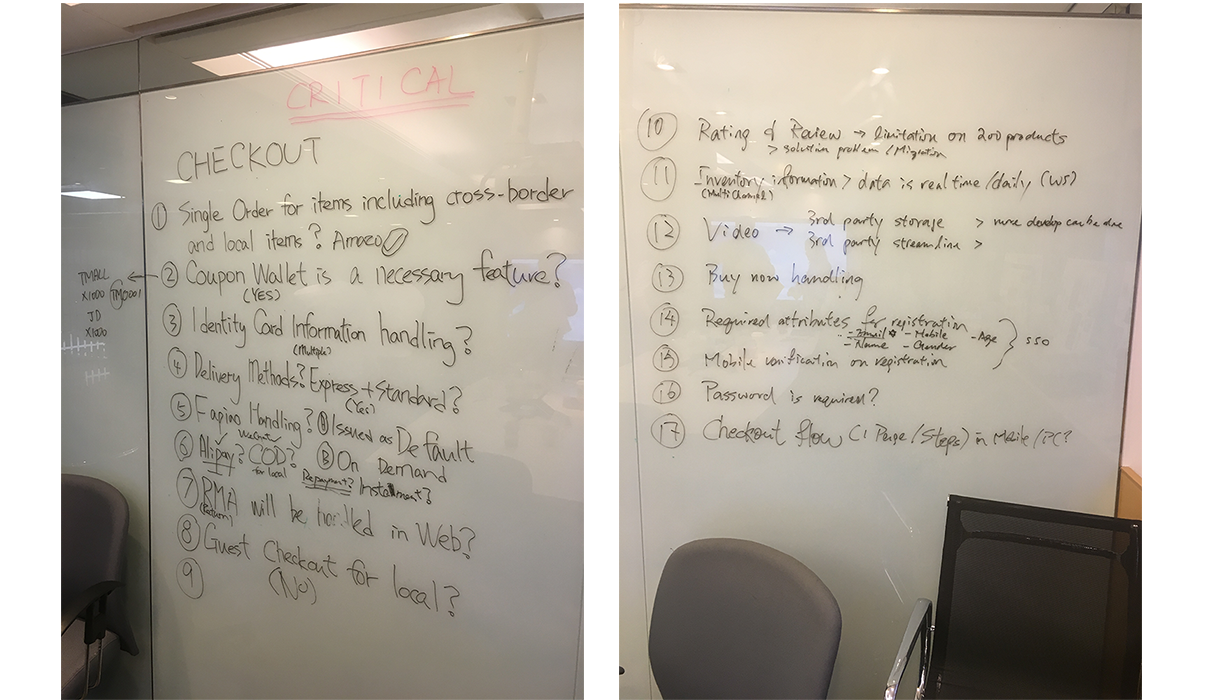 CRITICAL
CHECKOUT
① Single Order for items including cross-border
and local items?
② Coupon Wallet is a necessary feature?
(YES)
TMALL
X1000
TM0001
JD
X1000
③ Identity Card Information handling?
(Multiple)
④ Delivery Methods? Express + Standard?
(Yes)
⑤ Fapiao Handling? Ⓐ Issued as Default
Ⓑ On Demand
⑥ Alipay? COD?
for local
Repayment? Installment?
⑦ RMA will be handled in Web?
(Return)
⑧ Guest Checkout for local?
(No)
⑨
⑩ Rating & Review → limitation on 200 products
> solution problem / Migration
⑪ Inventory information > data is real time / daily (WS)
(Multi Channel)
⑫ Video → 3rd party storage > more develop can be done
3rd party streamline >
⑬ Buy now handling
⑭ Required attributes for registration
- Email * - Mobile - Age
- Name - Gender
SSO
⑮ Mobile verification on registration
⑯ Password is required?
⑰ Checkout flow (1 Page / Steps) in Mobile / PC?